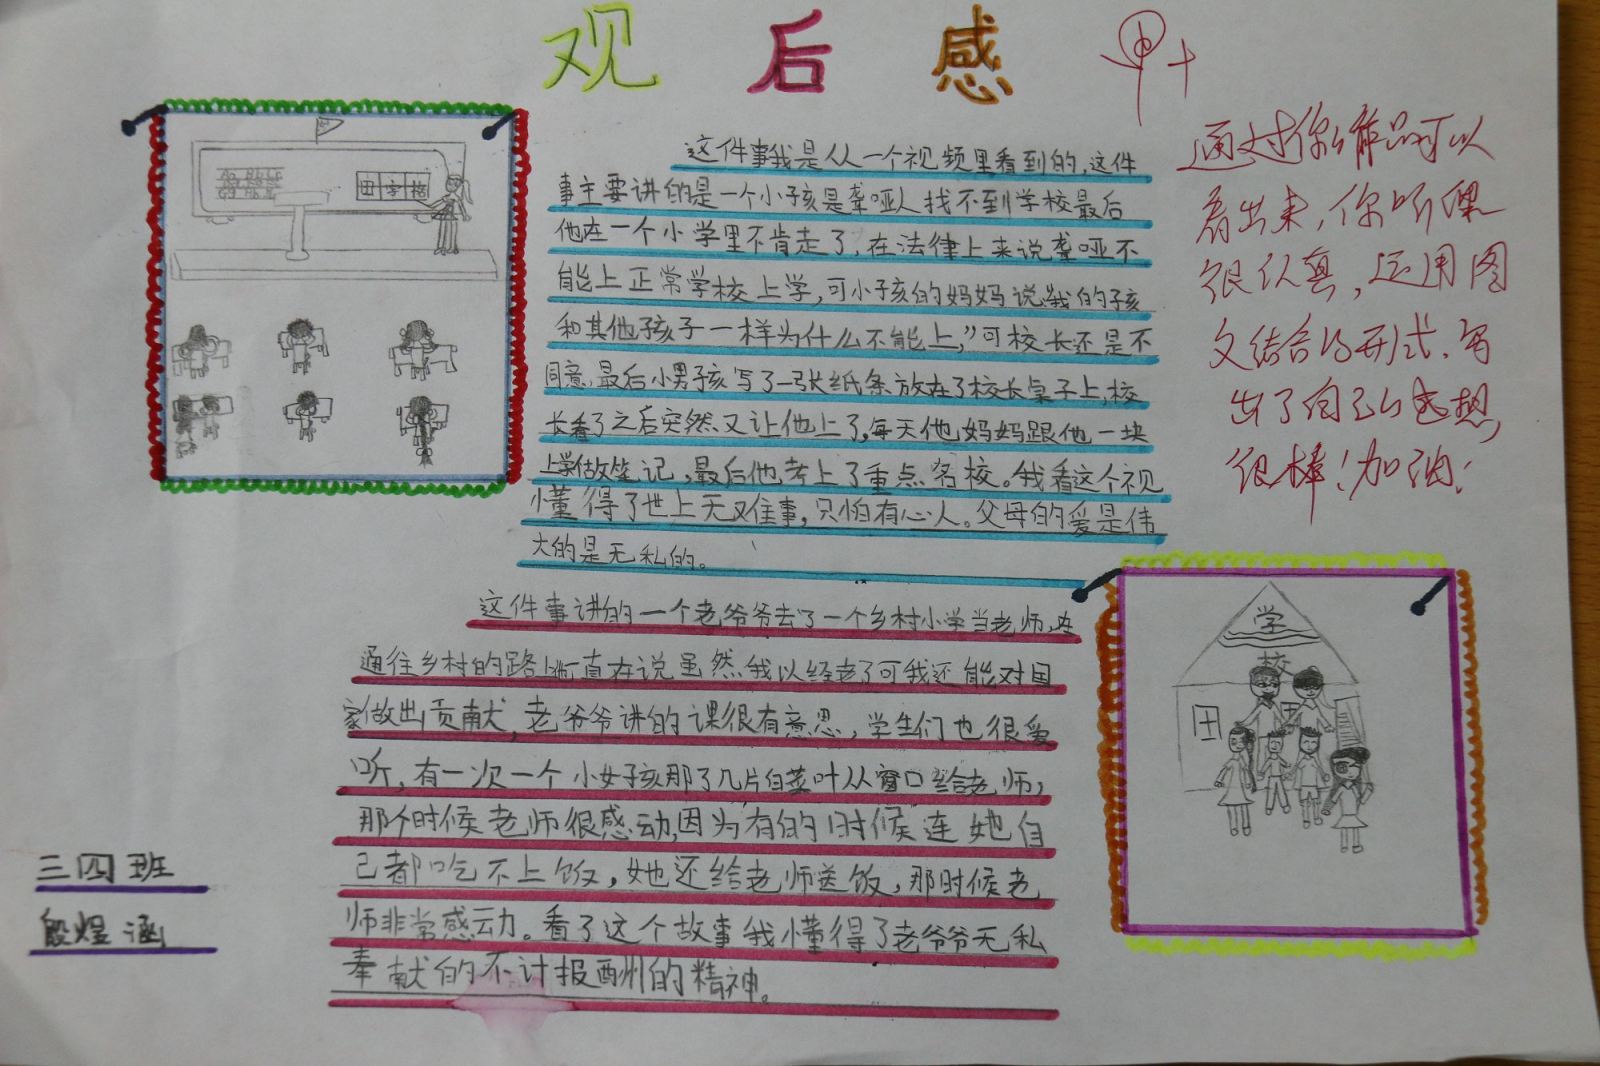 观后感
甲+
这件事我是从一个视频里看到的,这件
事主要讲的是一个小孩是聋哑人找不到学校最后
他在一个小学里不肯走了,在法律上来说聋哑不
能上正常学校上学,可小孩的妈妈说我的孩
和其他孩子一样为什么不能上,”可校长还是不
同意,最后小男孩写了一张纸条放在了校长桌子上,校
长看了之后突然又让他上了,每天他妈妈跟他一块
上学做笔记,最后他考上了重点名校。我看这个视
懂得了世上无难事,只怕有心人。父母的爱是伟
大的是无私的。
这件事讲的一个老爷爷去了一个乡村小学当老师,在
通往乡村的路上他一直在说虽然我以经老了可我还能对国
家做出贡献,老爷爷讲的课很有意思,学生们也很爱
听,有一次一个小女孩那了几片白菜叶从窗口给老师,
那个时候老师很感动,因为有的时候连她自
己都吃不上饭,她还给老师送饭,那时候老
师非常感动。看了这个故事我懂得了老爷爷无私
奉献的不计报酬的精神。
通过你的作品可以
看出来,你听课
很认真,运用图
文结合的形式,写
出了自己的感想,
很棒!加油!
田字格
学
校
三四班
殷煜涵